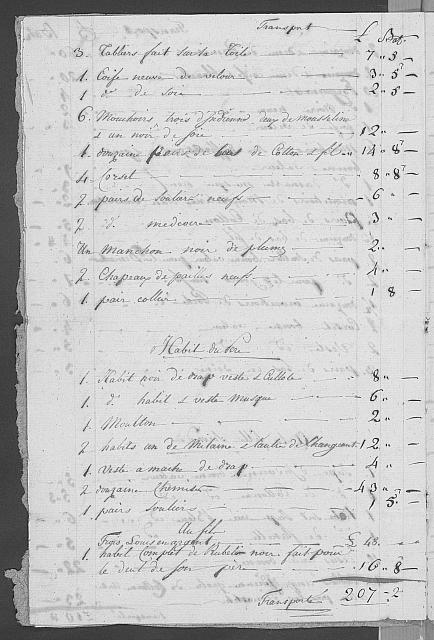 Transport £ Bat.
3. Tabliers fait sur la Toile 7 " 5
1. Coife neuve de velour 3 " 5
1 d° de soie 2 " 5
6. Mouchoirs trois d'Indienne deux de Mousseline
& un noir de soie 12 "
1. douzaine paires de bas de Cotton & fil 14 " 8
4. Corset 8 " 8
2 pairs de souliers neufs 6 "
2 d° mediocre 3 "
Un Manchon noir de plumes 2 "
2 Chapeaux de pailles neufs 4 "
1. pair collier 1 8
Habit du Pere
1. Habit noir de drap veste & Cullote 8 "
1. d° habit & veste musque 6 "
1. Moulton 2 "
2 habits un de Mitaine & l'autre de Changeant 12 "
1. veste a mache de drap 4 "
2 douzaine Chemise 43 "
1 pairs souliers 1 5
Au fil
Trois Louis en argent £ 48
1 habit Complet de noir fait pour
le deuil de son pere 16 " 8
Transporté 207 - 2